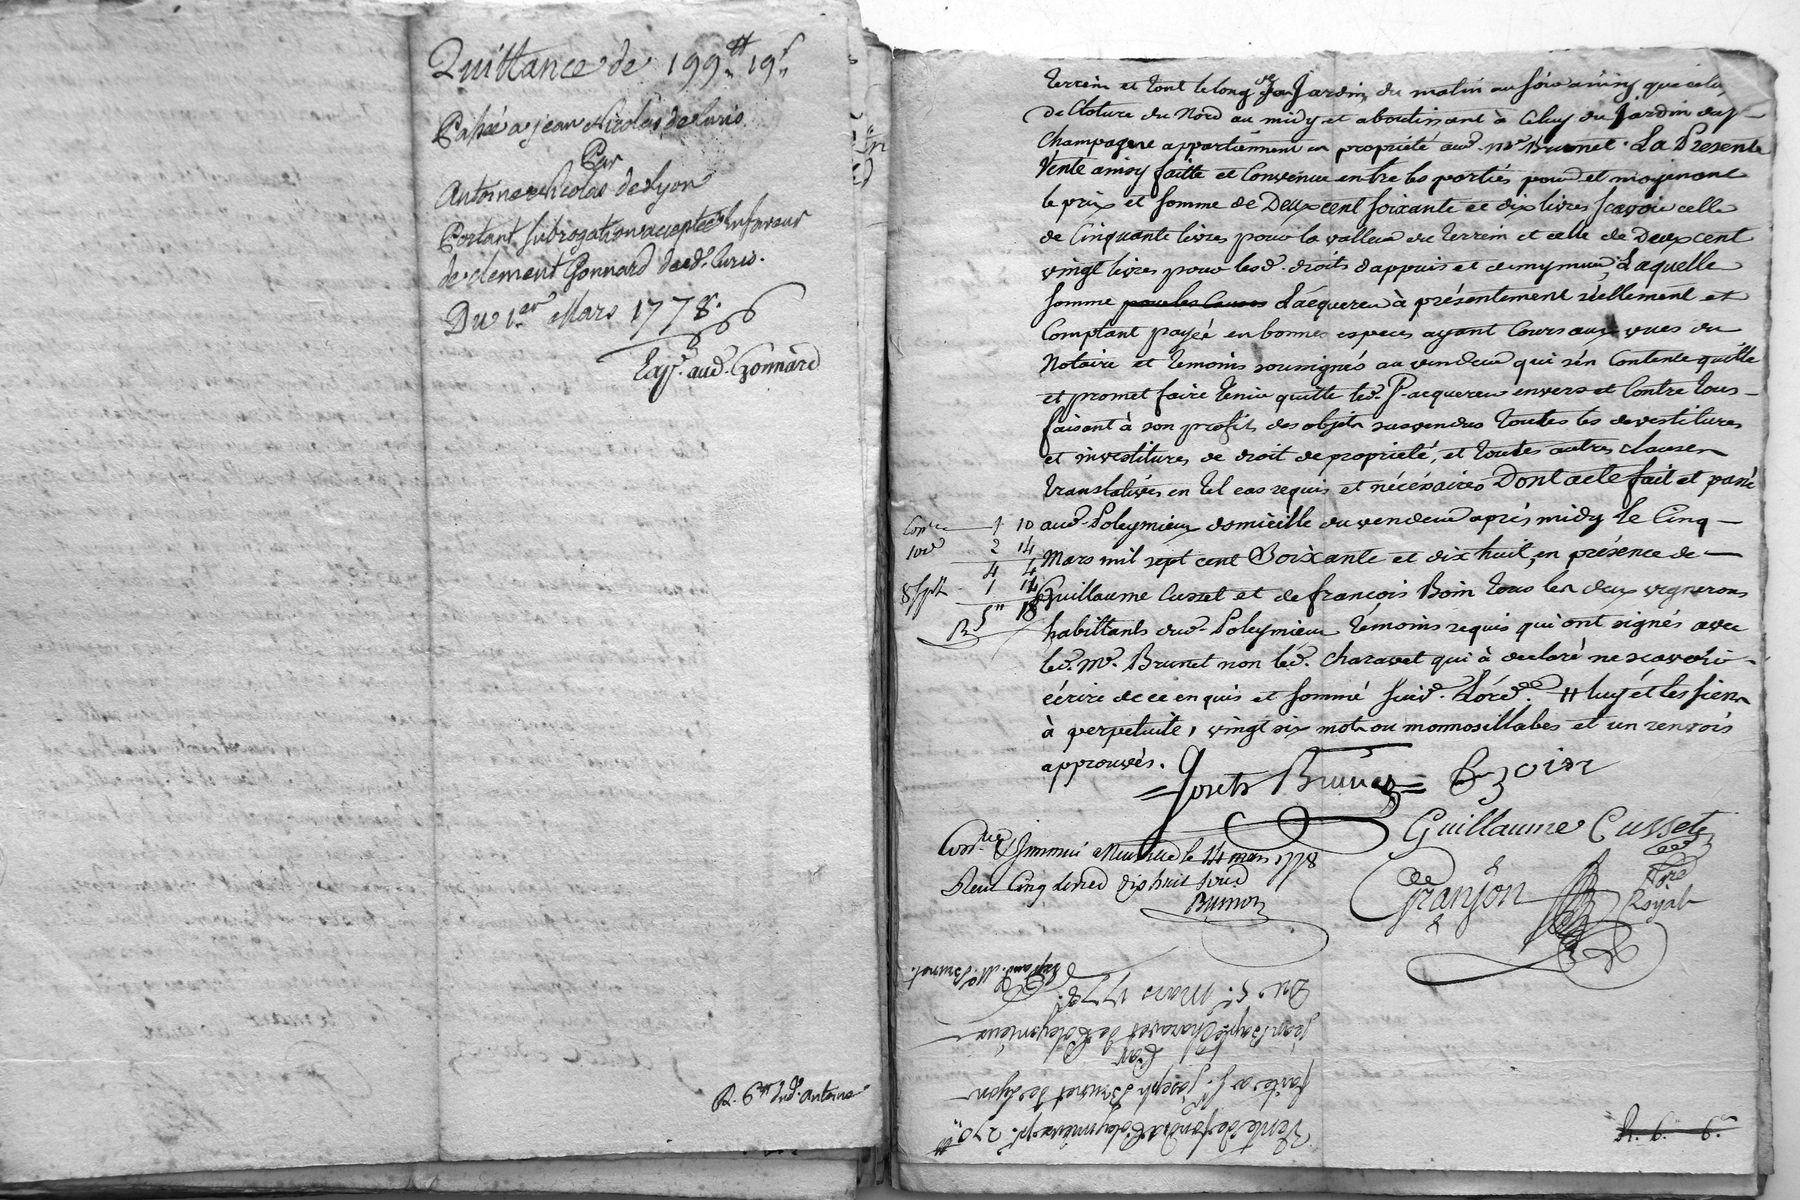 Quittance de 199ᵗᵗ 19ˢ
Passée a jean Nicolas de Curis
Par
Antoine Nicolas de Lyon
Portant subrogation acceptée En faveur
de clement Gonnard dud. Curis.
Du 1.er Mars 1778.
Exp.ᵉ aud. Gonnard
R. 6ᵗᵗ dud. antoine
terrein et tout le long du Jardin, du matin au soir ainsy que celuy
de Cloture du Nord au midy et aboutissant à Celuy du Jardin dud.
Champagne appartiennent en propriété aud. Mr. Brunet. La Presente
Vente ainsy faitte et Convenue entre les parties pour et moyenant
le prix et somme de Deux cent soixante et dix livres scavoir celle
de Cinquante livres pour la valleur du terrein et celle de Deux cent
vingt livres pour lesd. droits d'appuis et demy mur, Laquelle
somme pour les Causes L'acquereur à présentement réellement et
Comptant payée en bonnes especes ayant Cours aux vues du
Notaire et temoins soussignés au vendeur qui s'en Contente quitte
et promet faire tenir quitte led. Sr. acquereur envers et Contre tous
faisant à son profit des objets susvendus toutes les devestitures
et investitures de droit de propriété, et toutes autres clauses
translatives en tel cas requis et nécéssaires Dont acte fait et passé
aud. Poleymieux domicille du vendeur après midy le Cinq
Mars mil sept cent Soixante et dix huit, en présence de
Guillaume Cusset et de françois Boin tous les deux vignerons
habittants dud. Poleymieux témoins requis qui ont signés avec
led. Mr. Brunet non led. Charavet qui à declaré ne scavoir
écrire de ce enquis et sommé suiv. L'ord.ce # luy et les siens
à perpetuité, vingt six mots ou monnosillabes et un renvois
approuvés.
Con.lle 1 10
2 14
4 4
1 14
5" 18
R
Brunet
Guillaume Cusset
Granjon
Nre
Royal
Con.lle & Insinué a Neuville le 14 mars 1778
Reçu Cinq Livres dix huit sous
Vente de fond à Poleymieux pr. 270ᵗᵗ
faite a Sr. joseph Brunet de Lyon
Par
jean Bapte Charavet de Poleymieux
Du 5.e Mars 1778.
Exp. aud. Mr. Brunet.
R. 6. 6.s